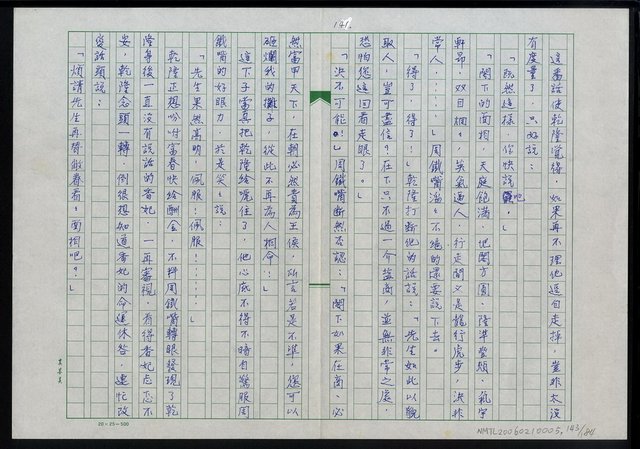 141.
這番話使乾隆覺得,如果再不理他逕自走掉,豈非太沒
有度量了,只好說:
「既然這樣,你快說吧!」
「閣下的面相,天庭飽滿、地閣方圓、隆準豎頰、氣宇
軒昂、双目炯炯、英氣逼人,行走間又是龍行虎步,決非
常人,……」周鐵嘴滿滿不絕的還要說下去。
「得了,得了!」乾隆打斷他的話說:「先生如此以貌
取人,豈可盡信?在下只不過一介監商,並無非常之處,
恐怕您這回看走眼了。」
「決不可能!」周鐵嘴斷然否認:「閣下如果在商,必
然富甲天下,在朝必然貴為王侯,所言若是不準,您可以
砸爛我的攤子,從此不再為人相命!」
這下子當真把乾隆給唬住了,他心底不得不暗自驚服周
鐵嘴的好眼力,於是笑說:
「先生果然高明,佩服!佩服!……」
乾隆正想吩咐富春快給酬金,不料周鐵嘴轉眼發現了乾
隆身後一直沒有說話的香妃,一再審視,看得香妃忐忑不
安,乾隆念頭一轉,倒很想知道香妃的命運休咎,連忙改
變話題說:
「煩請先生再替敝眷看看面相吧?」
20×25=500
NMTL20060210005, 143/184